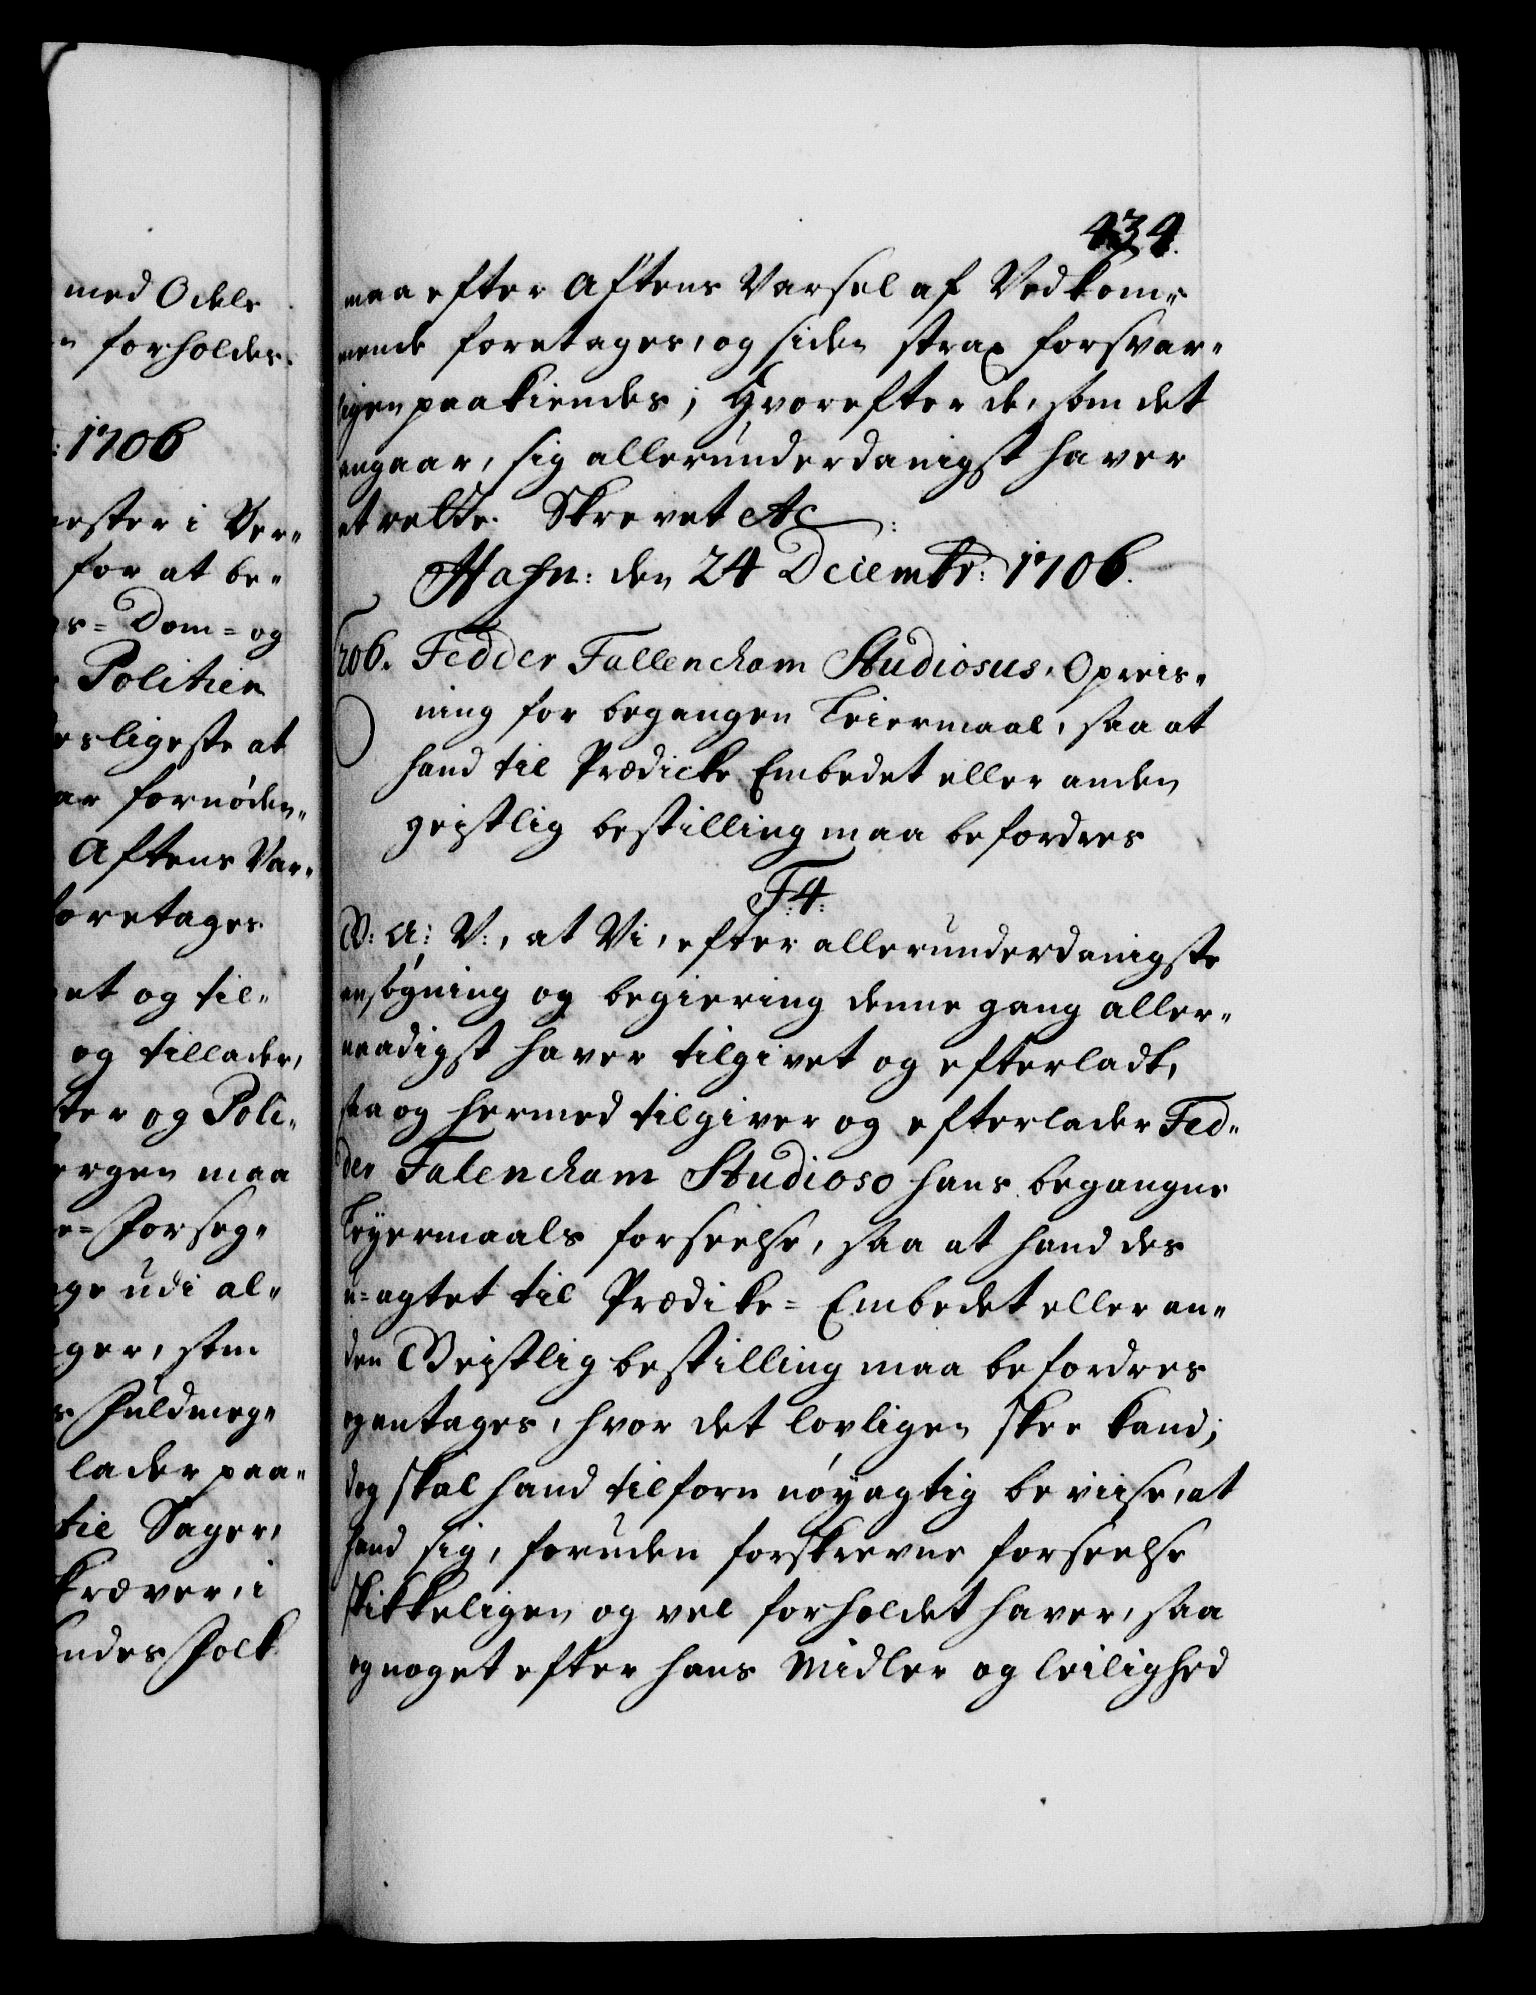 med Odels
forholdes.
: 1706
mester i Ber„
for at be„
s= Dom= og
Politien
esligeste at
ar fornøden„
Aftens Var„
foretages
et og til„
og tillader,
ter og Poli„
ergen maa
e= Forseg„
ge udi al„
ger, som
s Fuldmeg„
lader paa„
til Sager,
kræver, i
ndes Folk
434.
maa efter Aftens Varsel af Vedkom„
mende foretages, og siden strax forsvar„
ligen paakiendes; Hvorefter de, som det
angaar, sig allerunderdanigst haver
at rette. Skrevet &c:
Hafn: den 24 Deiembr: 1706.
206. Fedder Fallencham Studiosus, Opreis„
ning for begangen Leiermaal, saa at
hand til Prædicke Embedet eller anden
geistlig bestilling maa befordres
F: 4:
G: A: V:, at Vi, efter allerunderdanigste
ansøgning og begiering denne gang aller„
naadigst haver tilgivet og efterladt,
saa og hermed tilgiver og efterlader Fed„
der Falencham Studioso hans begangne
Leyermaals forseelse, saa at hand des
u=agtet til Prædike= Embedet eller an„
den Geistlig bestilling maa befordres
og antages, hvor det lovligen skee kand;
dog skal hand tilforn nøyagtig beviise, at
hand sig, foruden forskrevne forseelse
skikkeligen og vel forholdet haver, saa
og noget efter hans Midler og leilighed